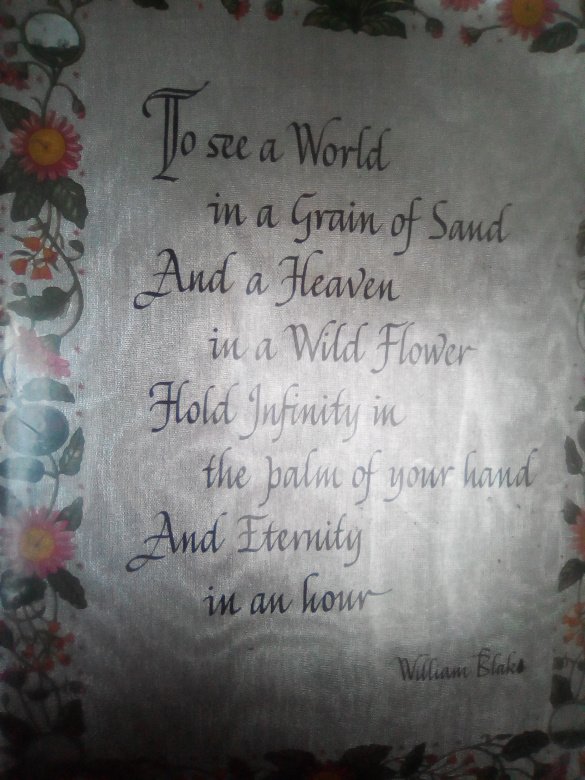 To see a World
in a Grain of Sand
And a Heaven
in a Wild Flower
Hold Infinity in
the palm of your hand
And Eternity
in an hour
William Blake